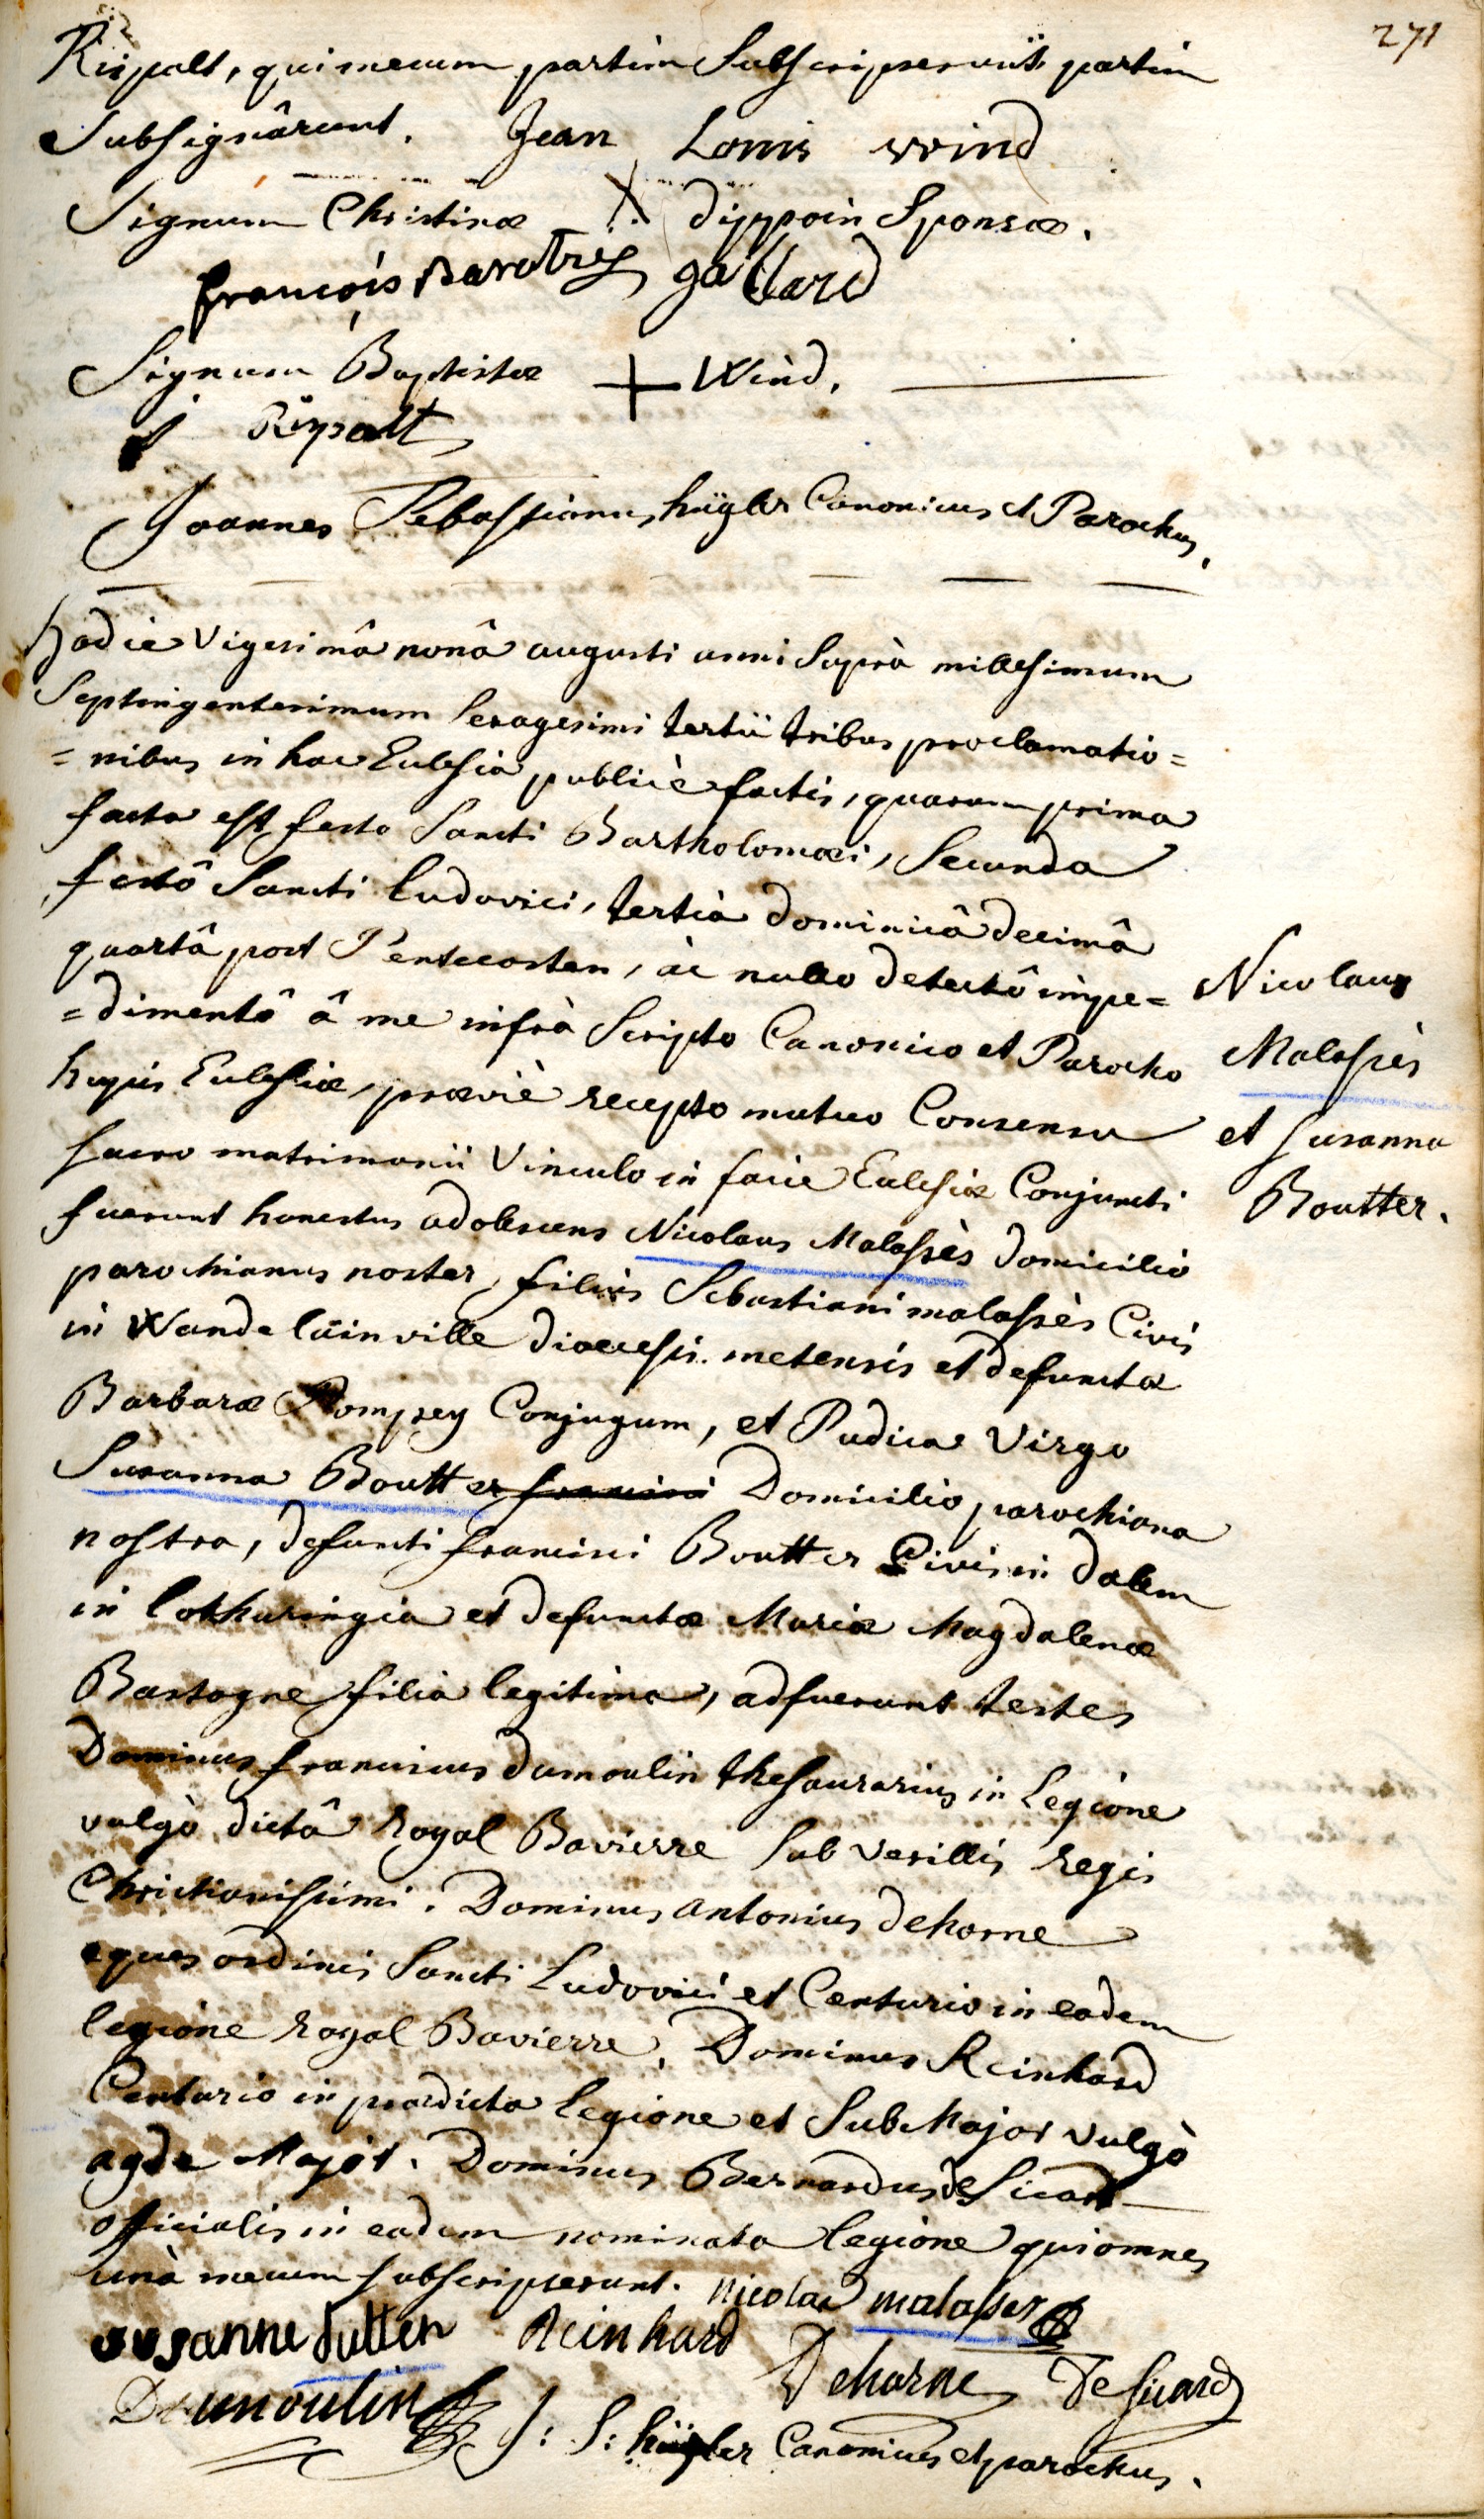 271
Rispalt, qui mecum partim Subscripserunt partim
Subsignârunt. Jean Louis wind
Signum Christinæ X dippoin Sponsæ.
francois Barotrey gallard
Signum Baptistæ + Wind.
J Rispalt
Joannes Sebastianus hügler Canonicus et Parochus.
hodie Vigesimâ nonâ augusti anni Suprà millesimum
Septingentesimum Sexagesimi tertii tribus proclamatio=
=nibus in hac Eclesia publicè factis, quarum prima
facta est festo Sancti Bartholomæi, Secunda
festô Sancti Ludovici, tertia dominicâ decimâ
quartâ post Pentecosten, ac nullo detectô impe=
=dimentô â me infrà Scripto Canonico et Parocho
hujus Eclesiæ, præviè recepto mutuo Consensu
sacro matrimonii Vinculo in facie Eclesiæ Conjuncti
fuerunt honestus adolescens Nicolaus Malassès domicilio
parochianus noster, filius Sebastiani malassès Civis
in Wandelainville dioecesis metensis et defunctæ
Barbaræ Pompey Conjugum, et Pudica Virgo
Susanna Boutter francisci Domicilio parochiana
nostra, defuncti francisci Boutter Civis in dalem
in lotharingia et defunctæ Mariæ Magdalenæ
Bastogne filia legitima, adfuerunt testes
Dominus franciscus dumoulin thesaurarius in Legione
vulgò dictâ Royal Bavierre Sub vexillis Regis
Christianissimi. Dominus antonius dehorne
eques ordinis Sancti Ludovici et Centurio in eadem
legione Royal Bavierre. Dominus Reinhard
Centurio in prædicta legione et Sub Major vulgò
agde Major. Dominus Bernardus de Sicard
officialis in eadem nominata legione qui omnes
unà mecum subscripserunt. nicolas malasses
susanne butter Reinhard Dehorne De sicard
Dumoulin J: S: hügler Canonicus et parochus.
Nicolaus
Malassès
et susanna
Boutter.